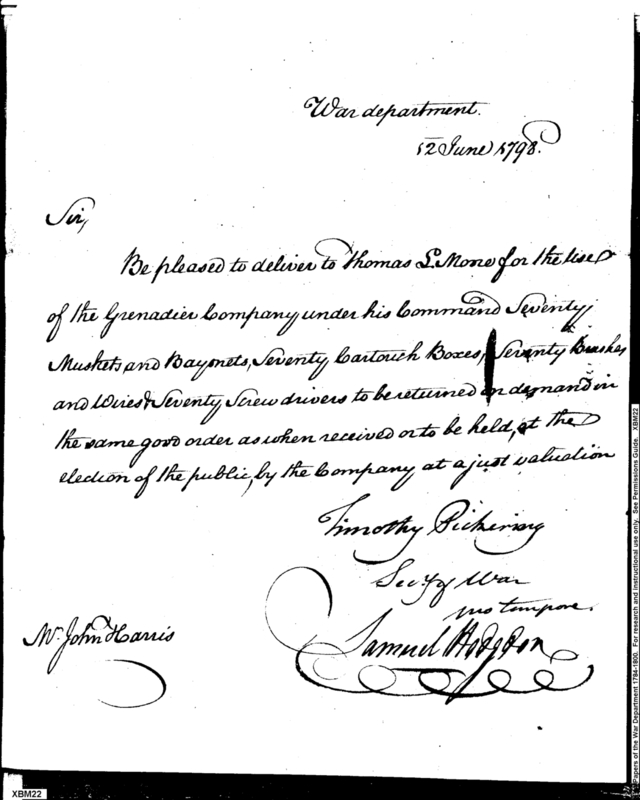 War department.
12 June 1798.
Sir,
Be pleased to deliver to Thomas L. Mone for the use
of the Grenadier Company under his Command Seventy
Muskets and Bayonets, Seventy Cartouch Boxes, Seventy Brushes
and Wires & Seventy Screw drivers to be returned on demand in
the same good order as when received or to be held, at the
election of the public, by the Company at a just valuation
Timothy Pickering
Secy of War
pro tempore.
Mr. John Harris
Samuel Hodgdon
XBM22
Papers of the War Department 1784-1800. For research and instructional use only. See Permissions Guide. XBM22